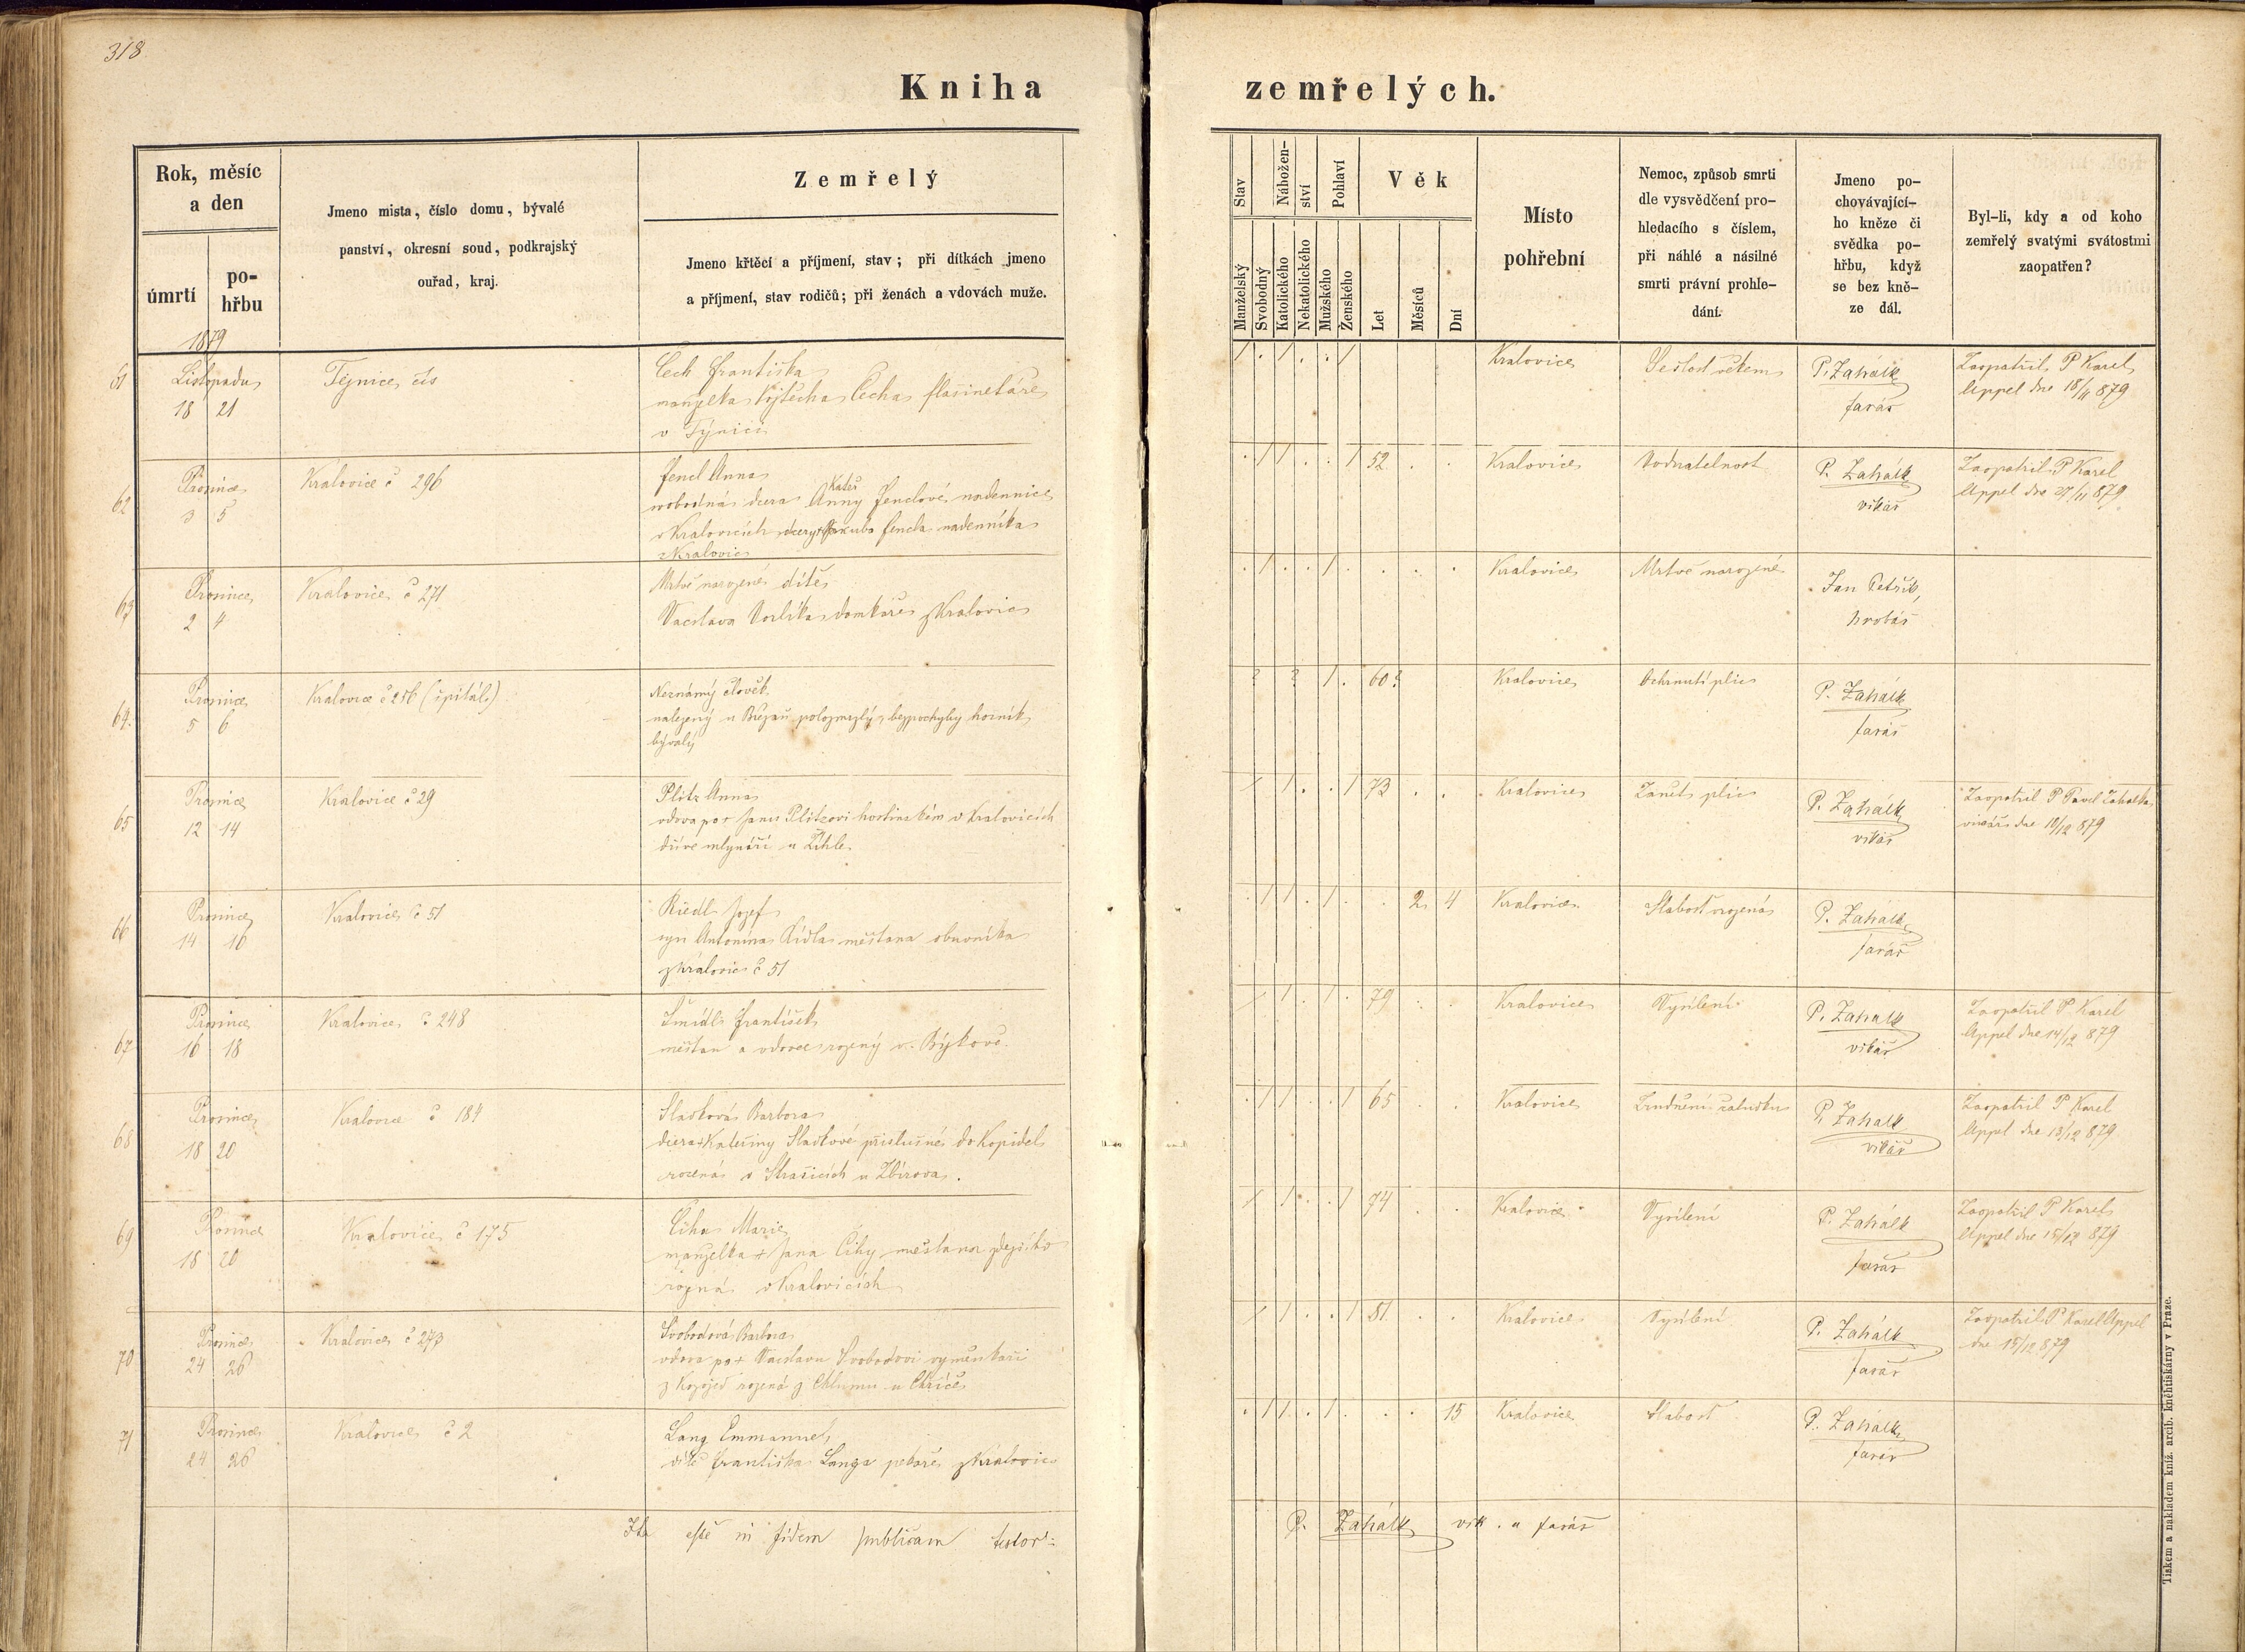 318
Kniha
zemřelých.
Rok, měsíc
a den
úmrtí
po-
hřbu
Jmeno mista, číslo domu, bývalé
panství, okresní soud, podkrajský
ouřad, kraj.
Zemřelý
Jmeno křtěcí a příjmení, stav; při dítkách jmeno
a příjmení, stav rodičů; při ženách a vdovách muže.
Stav
Nábožen-
ství
Pohlaví
Věk
Manželský
Svobodný
Katolického
Nekatolického
Mužského
Ženského
Let
Měsíců
Dní
Místo
pohřební
Nemoc, způsob smrti
dle vysvědčení pro-
hledacího s číslem,
při náhlé a násilné
smrti právní prohle-
dání.
Jmeno po-
chovávající-
ho kněze či
svědka po-
hřbu, když
se bez kně-
ze dál.
Byl-li, kdy a od koho
zemřelý svatými svátostmi
zaopatřen?
1879
61
Listopadu
18 21
Týnice čís
Čech Františka
manželka Vojtěcha Čecha flašinetáře
v Týnici
Kralovice
Sešlost věkem
P. Zahálk
farář
Zaopatřil P Karel
Appel dne 18/11 879
62
Prosince
3 5
Kralovice č 296
Fencl Anna
svobodná dcera Anny Fenclové nadennice
v Kralovicích dcery + Jakuba Fencla nadenníka
z Kralovic
52
Kralovice
Vodnatelnost
P. Zahálk
vikář
Zaopatřil P Karel
Appel dne 27/11 879
63
Prosince
2 4
Kralovice č 271
Mrtvě narozené dítě
Vaclava Vorlíka domkáře z Kralovic
Kralovice
Mrtvě narozené
Jan Petřík
hrobař
64
Prosince
5 6
Kralovice č 256 (špitál)
Neznámý člověk
nalezený u Břízan polozmrzlý, bezpochyby horník
bývalý
? ? 60?
Kralovice
Ochrnutí plic
P. Zahálk
farář
65
Prosince
12 14
Kralovice č 29
Plitz Anna
vdova po + Janu Plitzovi hostinském v Kralovicích
dříve mlynáři u Žihle
73
Kralovice
Zanět plic
P. Zahálk
vikář
Zaopatřil P Pavel Zahálka
vikář dne 10/12 879
66
Prosince
14 16
Kralovice č 51
Riedl Josef
syn Antonína Řídla měštana obuvníka
z Kralovic č 51
2 4
Kralovice
Slabost vrozená
P. Zahálk
farář
67
Prosince
16 18
Kralovice č 248
Šmídl František
měštan a vdovec rozený v Býkově
79
Kralovice
Vysílení
P. Zahálk
vikář
Zaopatřil P Karel
Appel dne 14/12 879
68
Prosince
18 20
Kralovice č 184
Sladková Barbora
dcera + Kateřiny Sladkové příslušné do Kopidel
rozená v Strašicích u Zbirova.
65
Kralovice
žaludku
P. Zahálk
vikář
Zaopatřil P Karel
Appel dne 13/12 879
69
Prosince
18 20
Kralovice č 175
Číha Marie
manželka + Jana Číhy měštana zdejšího
rozená v Kralovicích
74
Kralovice
Vysílení
P. Zahálk
farář
Zaopatřil P Karel
Appel dne 15/12 879
70
Prosince
24 26
Kralovice č 273
Svobodová Barbora
vdova po + Vaclavu Svobodovi vyměnkaři
z Kozojed rozená z Chlumu u Chříče
81
Kralovice
Vysílení
P. Zahálk
farář
Zaopatřil P Karel Appel
dne 15/12 879
71
Prosince
24 26
Kralovice č 2
Lang Emmanuel
dítě Františka Langa pekaře z Kralovic
15
Kralovice
Slabost
P. Zahálk
farář
Ita esse in fidem publicam testor:
P. Zahálk vik. a farář
Tiskem a nakladem kníž. arcib. knéhtiskárny v Praze.